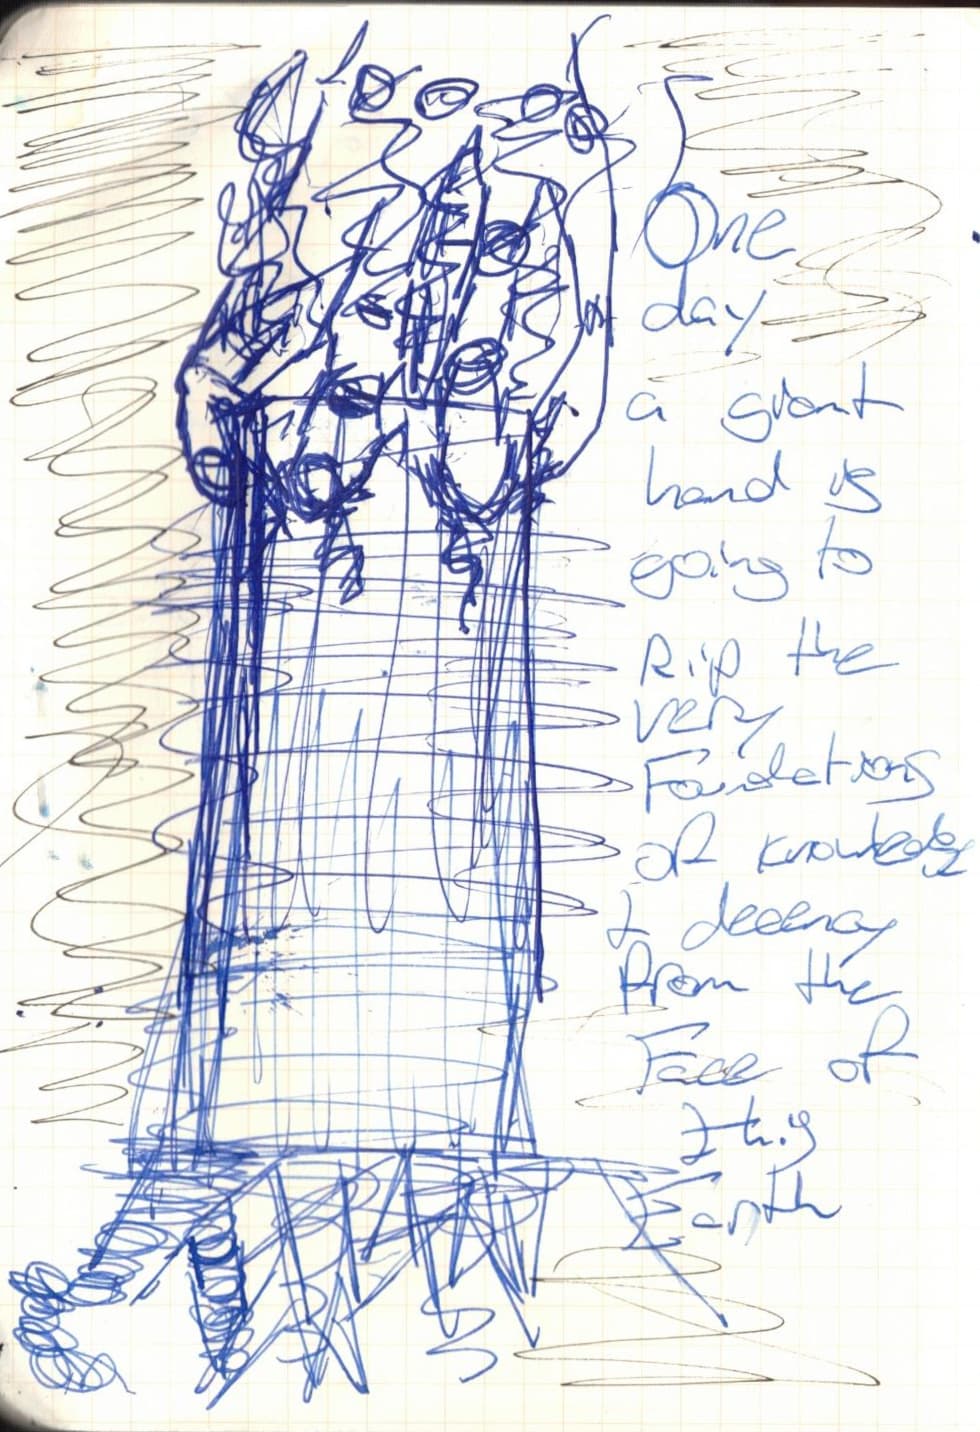 One
day
a giant
hand is
going to
Rip the
very
Foundations
of knowledge
& decency
From the
Face of
this
Earth